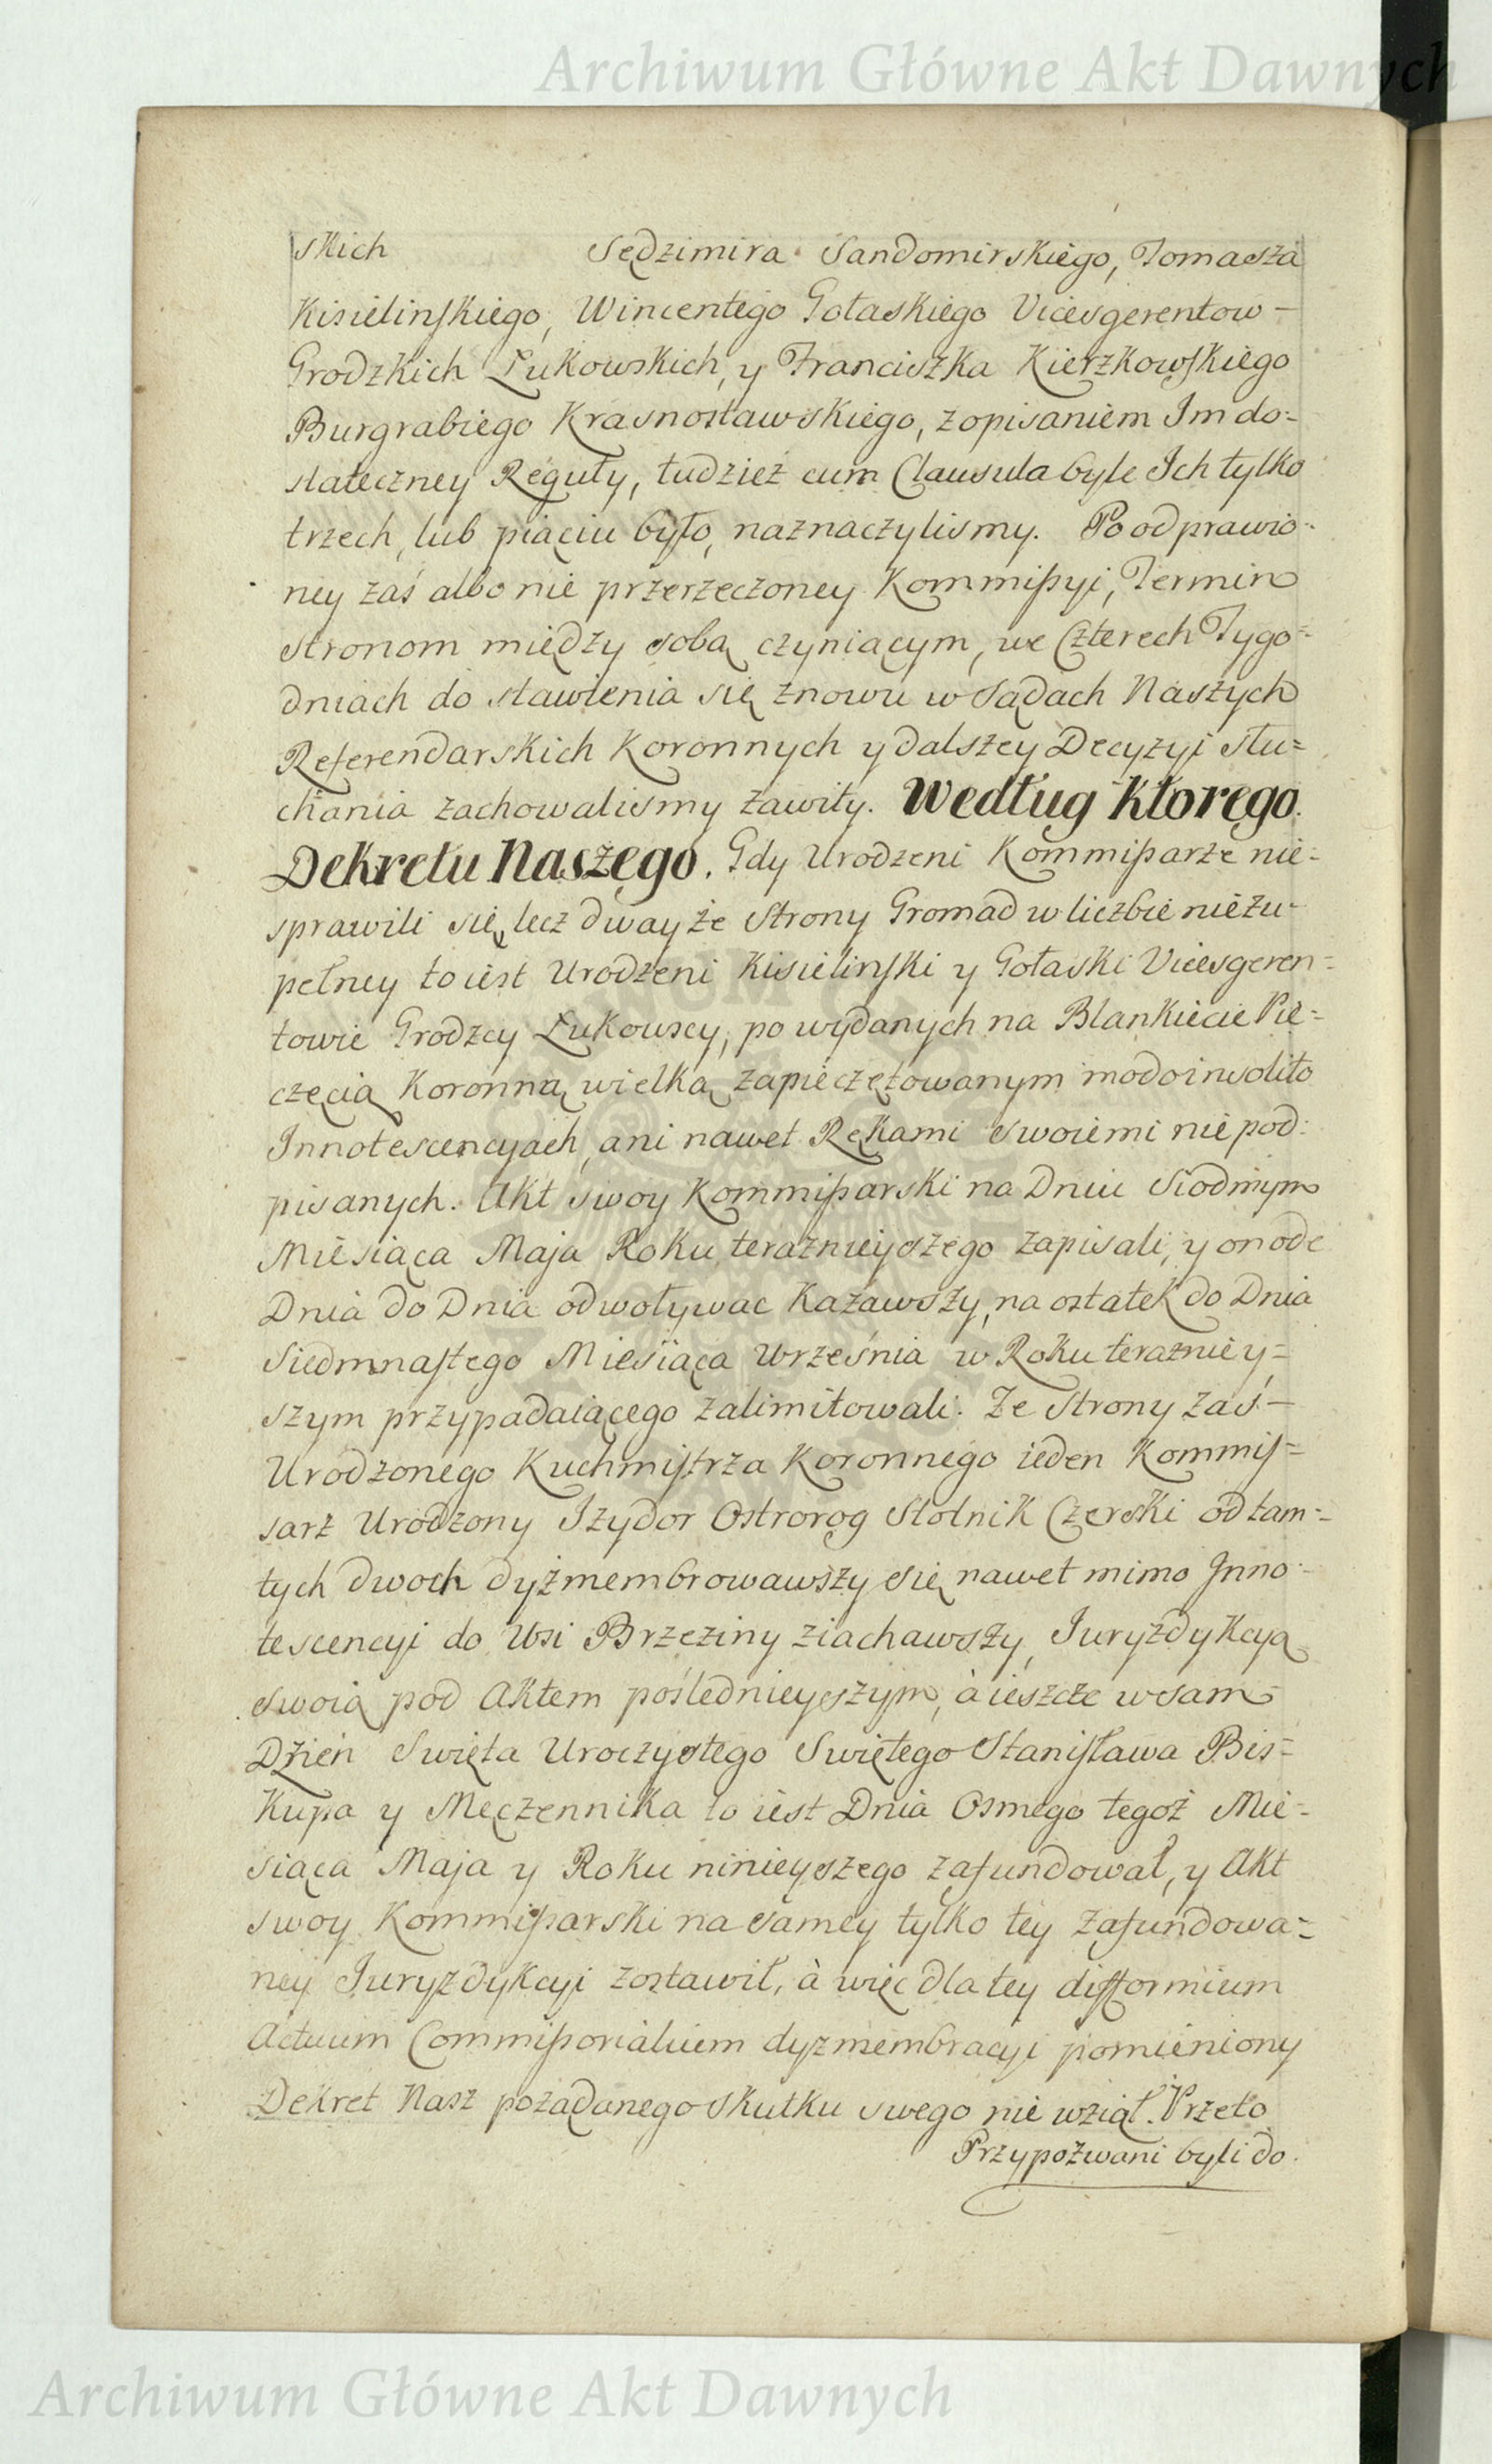 Archiwum Główne Akt Dawnych
skich Sędzimira Sandomirskiego, Tomasza
Kisielinskiego, Wincentego Gołaskiego Vicesgerentow –
Grodzkich Łukowskich, y Franciszka Kierzkowskiego
Burgrabiego Krasnostawskiego, z opisaniem Im do=
stateczney Reguły, tudzież cum Clausula byle Ich tylko
trzech, lub piąciu było, naznaczylismy. Po odprawio=
ney zaś albo nie przerzeczoney Kommißyi, Termin
Stronom między sobą czyniącym, we Czterech Tygo=
dniach do stawienia się znowu w Sądach Naszych
Referendarskich Koronnych y dalszey Decyzyi słu=
chania zachowalismy zawity. Według Ktorego
Dekretu Naszego. Gdy Urodzeni Kommißarze nie=
sprawili się, lecz dway ze Strony Gromad w liczbie niezu=
pełney to iest Urodzeni Kisielinski y Gołaski Vicesgeren=
towie Grodzcy Łukowscy, po wydanych na Blankiecie Pie=
częcią Koronną wielką zapieczętowanym modo insolito
Innotescencyach, ani nawet Rękami swoiemi nie pod=
pisanych. Akt swoy Kommißarski na Dniu Siodmym
Miesiąca Maja Roku teraznieyszego zapisali, y on ode
Dnia do Dnia odwoływac Kazawszy, na ostatek do Dnia
Siedmnastego Miesiąca Września w Roku terazniey=
szym przypadaiącego zalimitowali. Ze Strony zaś –
Urodzonego Kuchmistrza Koronnego ieden Kommis=
sarz Urodzony Izydor Ostrorog Stolnik Czerski od tam=
tych dwoch dyzmembrowawszy się nawet mimo Inno=
tescencyi do Wsi Brzeziny ziachawszy, Iuryzdykcyą
swoią pod Aktem poślednieyszym, à ieszcze w sam
Dzień Swięta Uroczystego Swiętego Stanisława Bis=
kupa y Męczennika to iest Dnia Osmego tegoż Mie=
siąca Maja y Roku ninieyszego zafundował, y Akt
swoy Kommißarski na samey tylko tey zafundowa=
ney Iuryzdykcyi zostawił, à więc dla tey difformium
Actuum Commißorialium dyzmembracyi pomieniony
Dekret Nasz pożądanego Skutku swego nie wziął. Przeto
Przypozwani byli do
Archiwum Główne Akt Dawnych